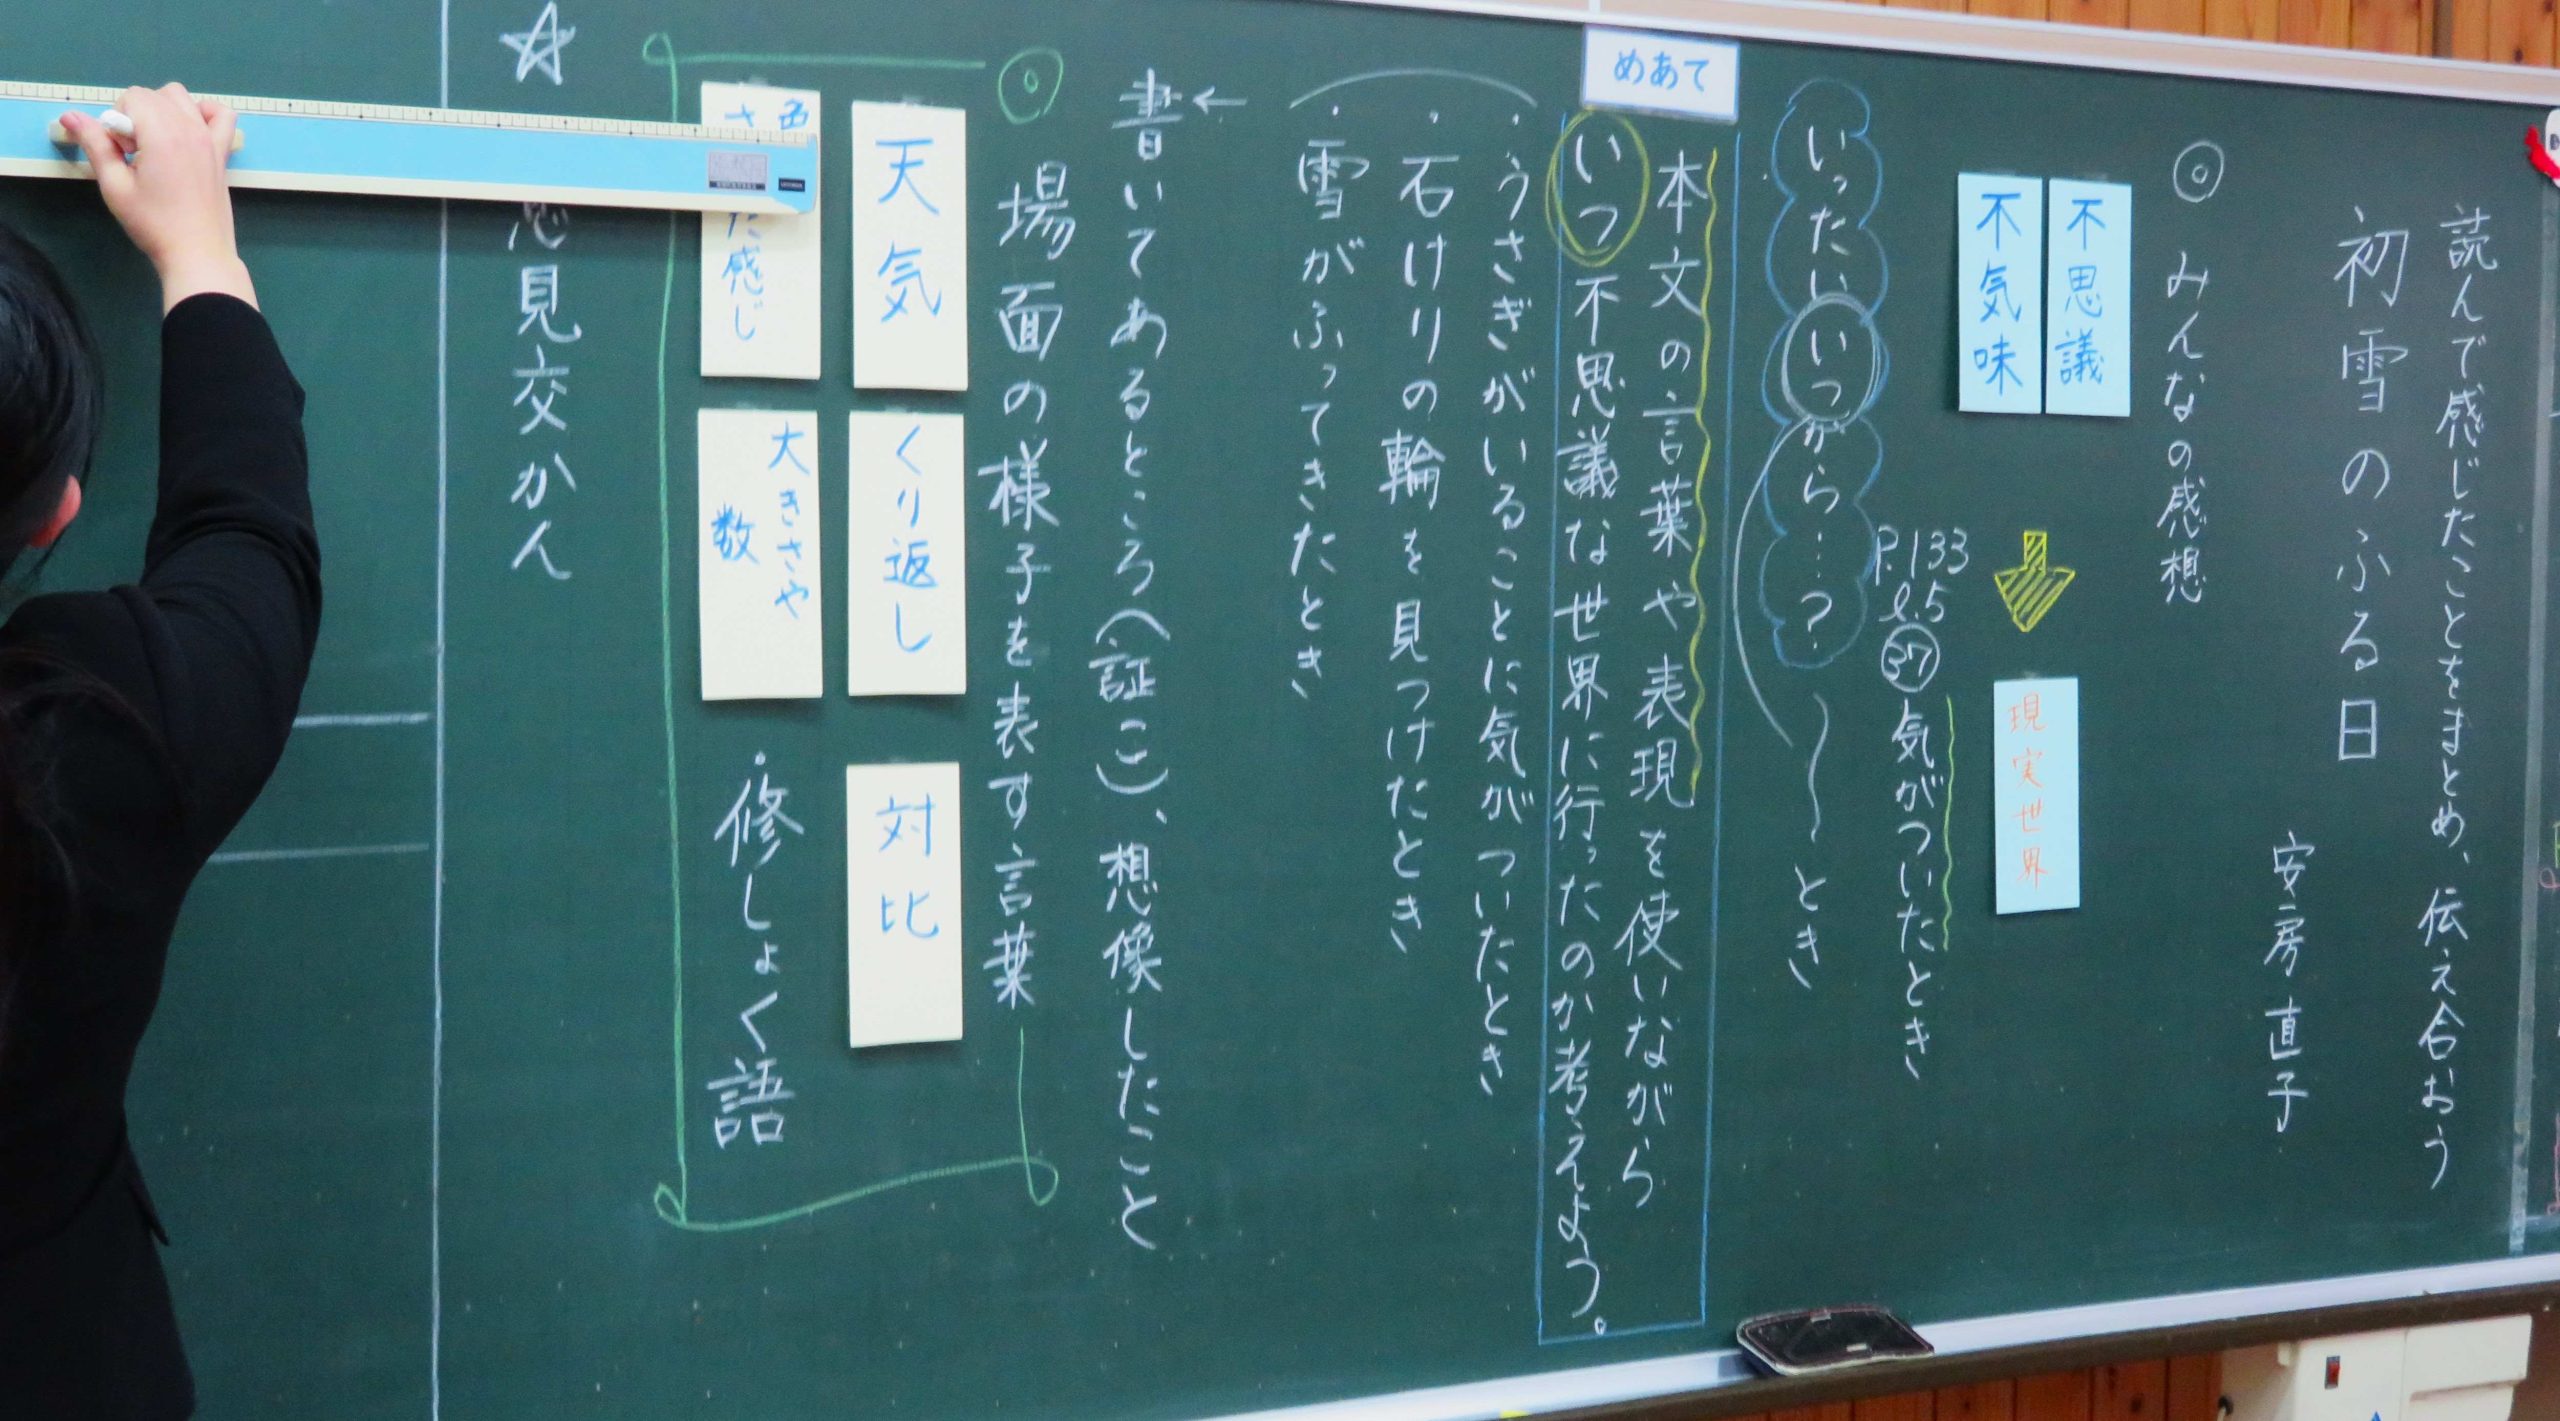 読んで感じたことをまとめ、伝え合おう
初雪のふる日
安房直子
◎ みんなの感想
不思議
不気味
現実世界
P.133
l.5
㊲ 気がついたとき
いったいいつから…?
〜とき
めあて
本文の言葉や表現を使いながら
いつ不思議な世界に行ったのか考えよう。
・うさぎがいることに気がついたとき
・石けりの輪を見つけたとき
・雪がふってきたとき
書いてあるところ(証こ)、想像したこと
◎ 場面の様子を表す言葉
天気
くり返し
対比
色
た感じ
大きさや
数
・修しょく語
☆ 意見交かん